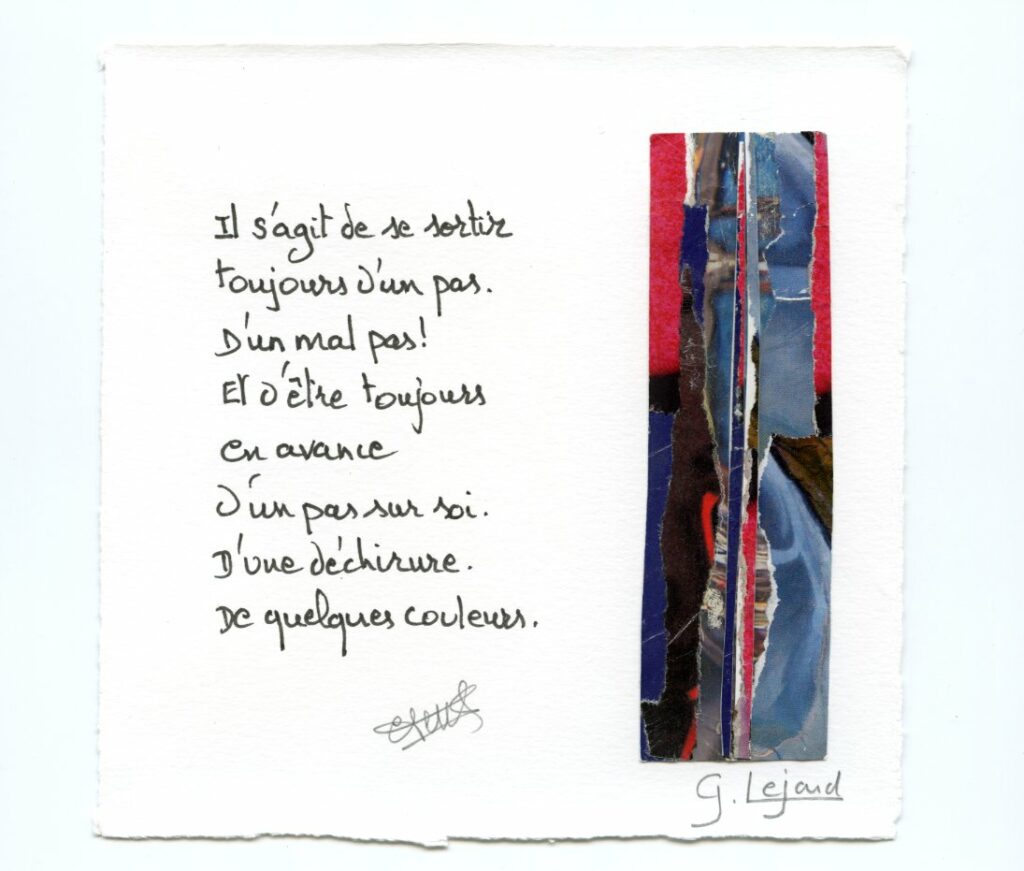 Il s'agit de se sortir
toujours d'un pas.
D'un mal pas!
Et d'être toujours
en avance
d'un pas sur soi.
D'une déchirure.
De quelques couleurs.
G. Lejard